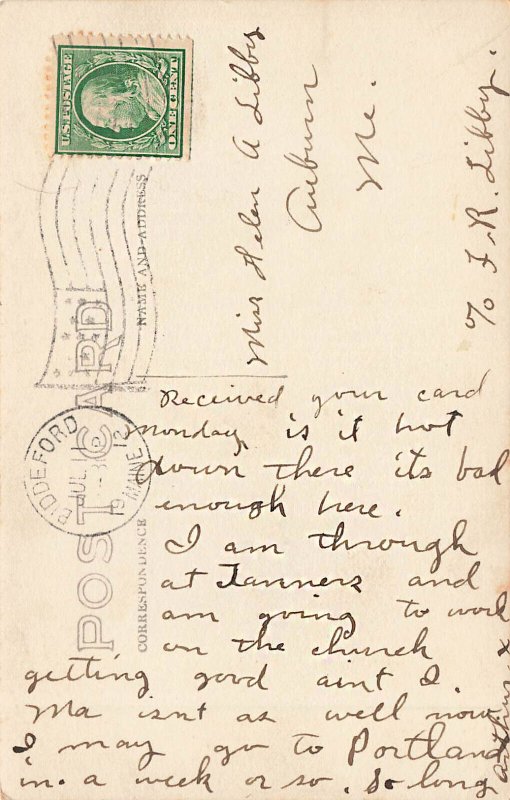 POST CARD
CORRESPONDENCE
NAME AND ADDRESS
U.S. POSTAGE
ONE CENT
BIDDEFORD
JUL 11
1912
MAINE
Miss Helen A Libby
Auburn
Me.
c/o F. R. Libby.
Received your card
monday, is it hot
down there its bad
enough here.
I am through
at Tanners and
am going to work
on the church
getting good aint I.
Ma isnt as well now
I may go to Portland
in a week or so, So long
Arthur x